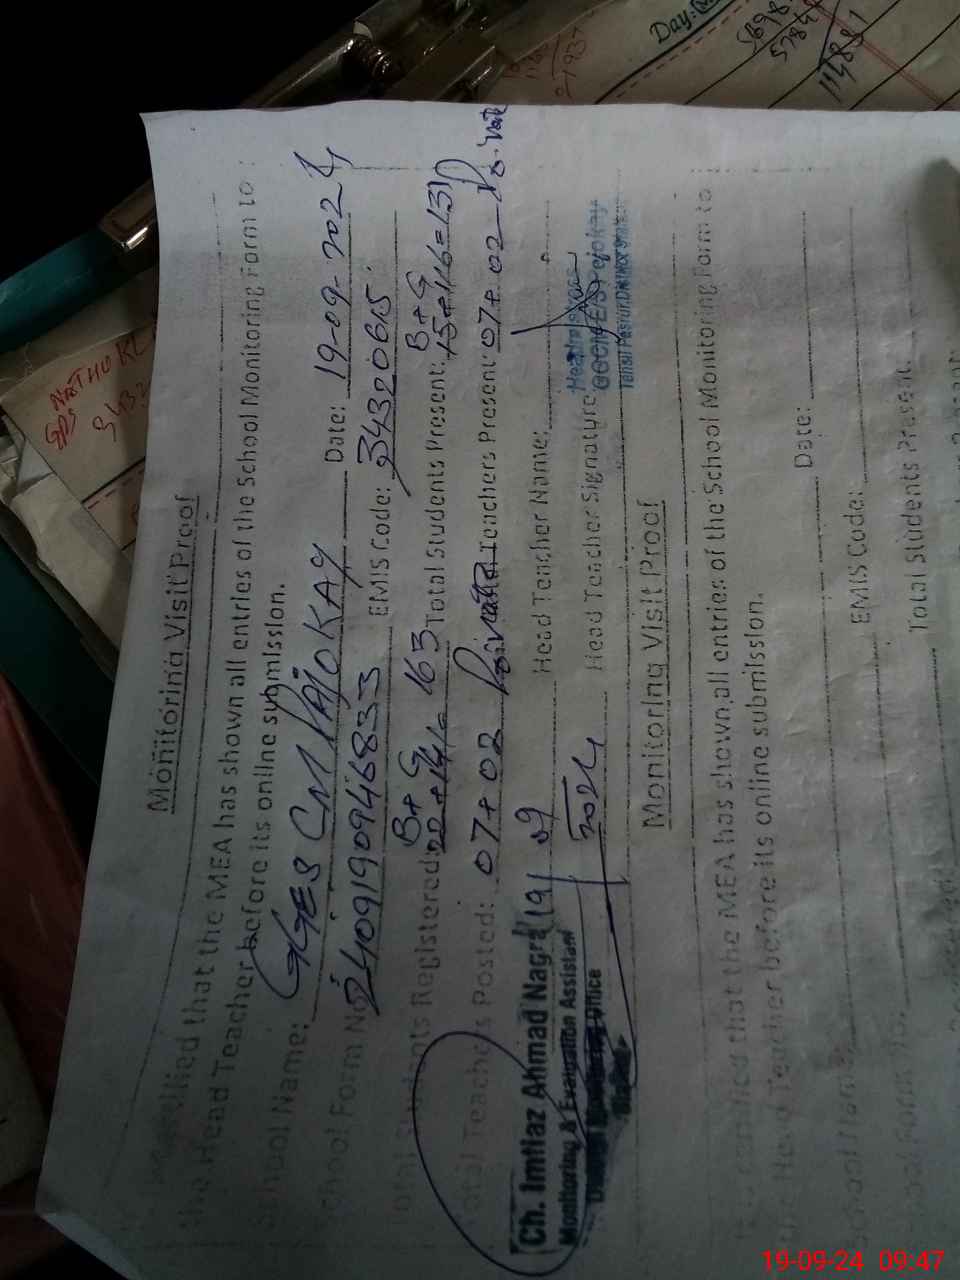 Monitoring Visit Proof
that the MEA has shown all entries of the School Monitoring Form to
the Head Teacher before its online submission.
School Name: GGES CM PAJOKAY Date: 19-09-2024
School Form No. 2409190946833 EMIS Code: 34320615
B+ G B+ G
Students Registered: 22+141= 163 Total Students Present: 15+116=131
Total Teachers Posted: 07+02 Private Teachers Present: 07+02 Private
Head Teacher Name:
Head Teacher Signature
Headmistress
GGCMES Pajokay
Ch. Imtiaz Ahmad Nagra
Monitoring & Evaluation Assistant
Office
19/09
2024
Monitoring Visit Proof
that the MEA has shown all entries of the School Monitoring Form to
the Head Teacher before its online submission.
School Name: Date:
School Form No. EMIS Code:
Total Students Present:
Day:
5698
5784
11481
NATHU KE
GPS
19-09-24 09:47